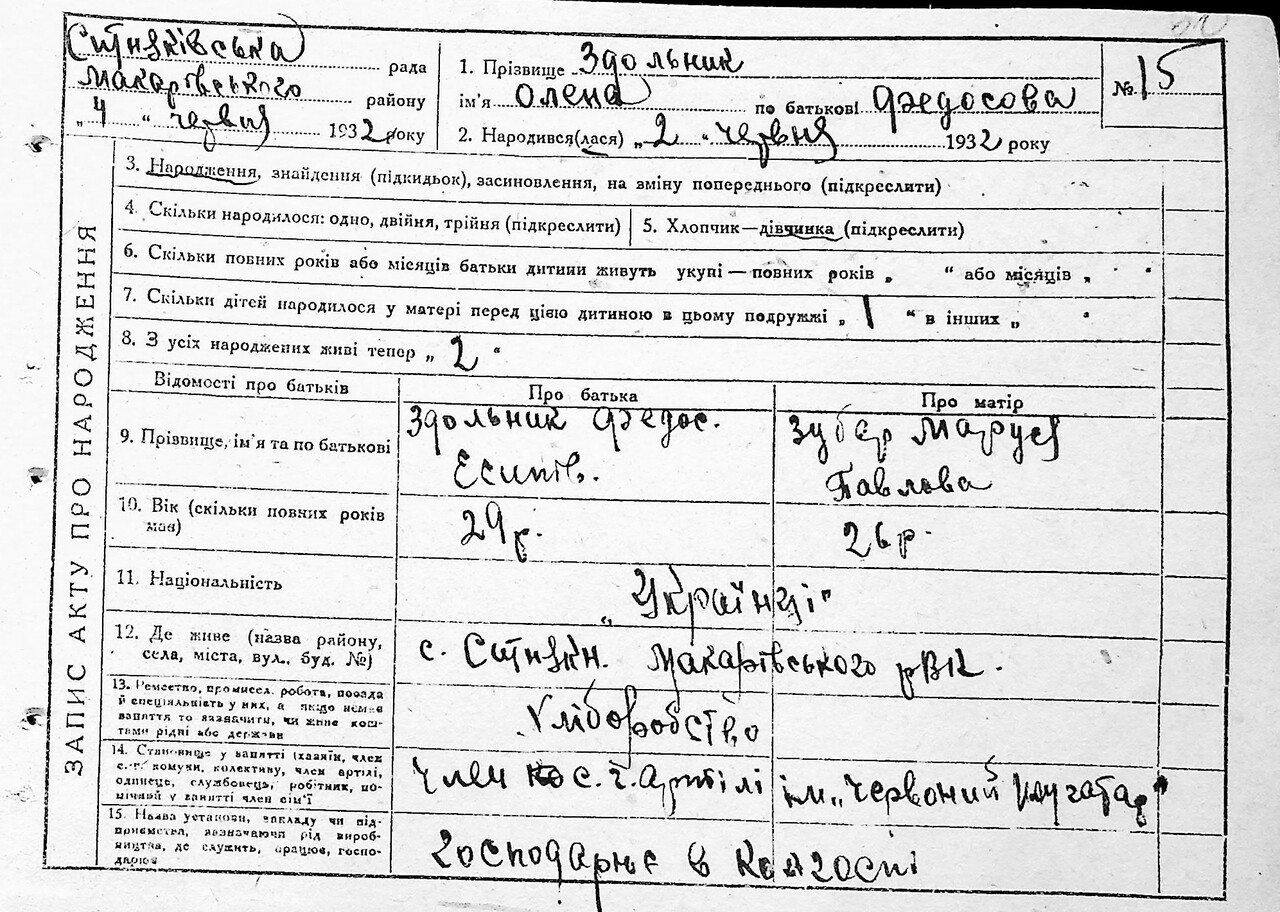 Ситняківська рада
Макарівського району
„4“ червня 1932 року
1. Прізвище Здольник
ім'я Олена по батькові Федосова
2. Народився(лася) „2“ червня 1932 року
№ 15
ЗАПИС АКТУ ПРО НАРОДЖЕННЯ
3. Народження, знайдення (підкидьок), засиновлення, на зміну попереднього (підкреслити)
4. Скільки народилося: одно, двійня, трійня (підкреслити)
5. Хлопчик—дівчинка (підкреслити)
6. Скільки повних років або місяців батьки дитини живуть укупі — повних років „ “ або місяців „ “
7. Скільки дітей народилося у матері перед цією дитиною в цьому подружжі „ 1 “ в інших „ “
8. З усіх народжених живі тепер „ 2 “
Відомості про батьків
Про батька
Про матір
9. Прізвище, ім'я та по батькові
Здольник Федос.
Есипів.
Зубар Маруся
Павлова
10. Вік (скільки повних років
мав)
29 р.
26 р.
11. Національність
„Українці"
12. Де живе (назва району,
села, міста, вул. буд. №)
с. Ситняки. Макарівського РВК.
13. Ремество, промисел, робота, посада
й спеціяльність у них, а якщо немає
заняття то зазначити, чи живе кош-
тами рідні або держави
Хліборобство
14. Становище у занятті (хазяїн, член
с.-г. комуни, колективу, член артілі,
одинець, службовець, робітник, по-
мічний у занятті член сім'ї
член с. г. Артілі ім. „Червоний
15. Назва установи, закладу чи під-
приємства, зазначаючи рід вироб-
ництва, де служить, працює, госпо-
дарює
Господарює в колгоспі